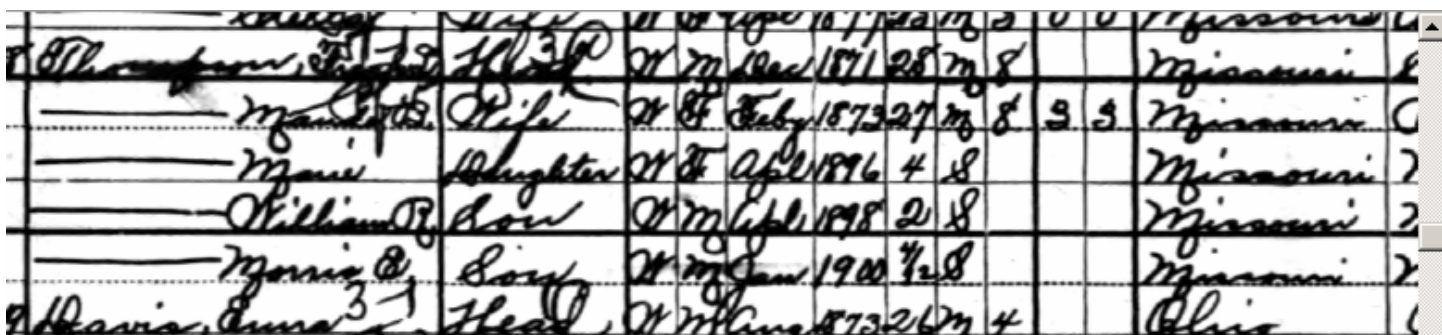 Wife W F Apl 1877 23 M 3 0 0 Missouri
Thompson, Head W M Dec 1871 28 M 8 Missouri
B. Wife W F Feby 1873 27 M 8 3 3 Missouri
Marie Daughter W F Apl 1896 4 S Missouri
William R. Son W M Apl 1898 2 S Missouri
Morris E. Son W M Jan 1900 4/12 S Missouri
Davis, Head W M Aug 1873 26 M 4 Ohio